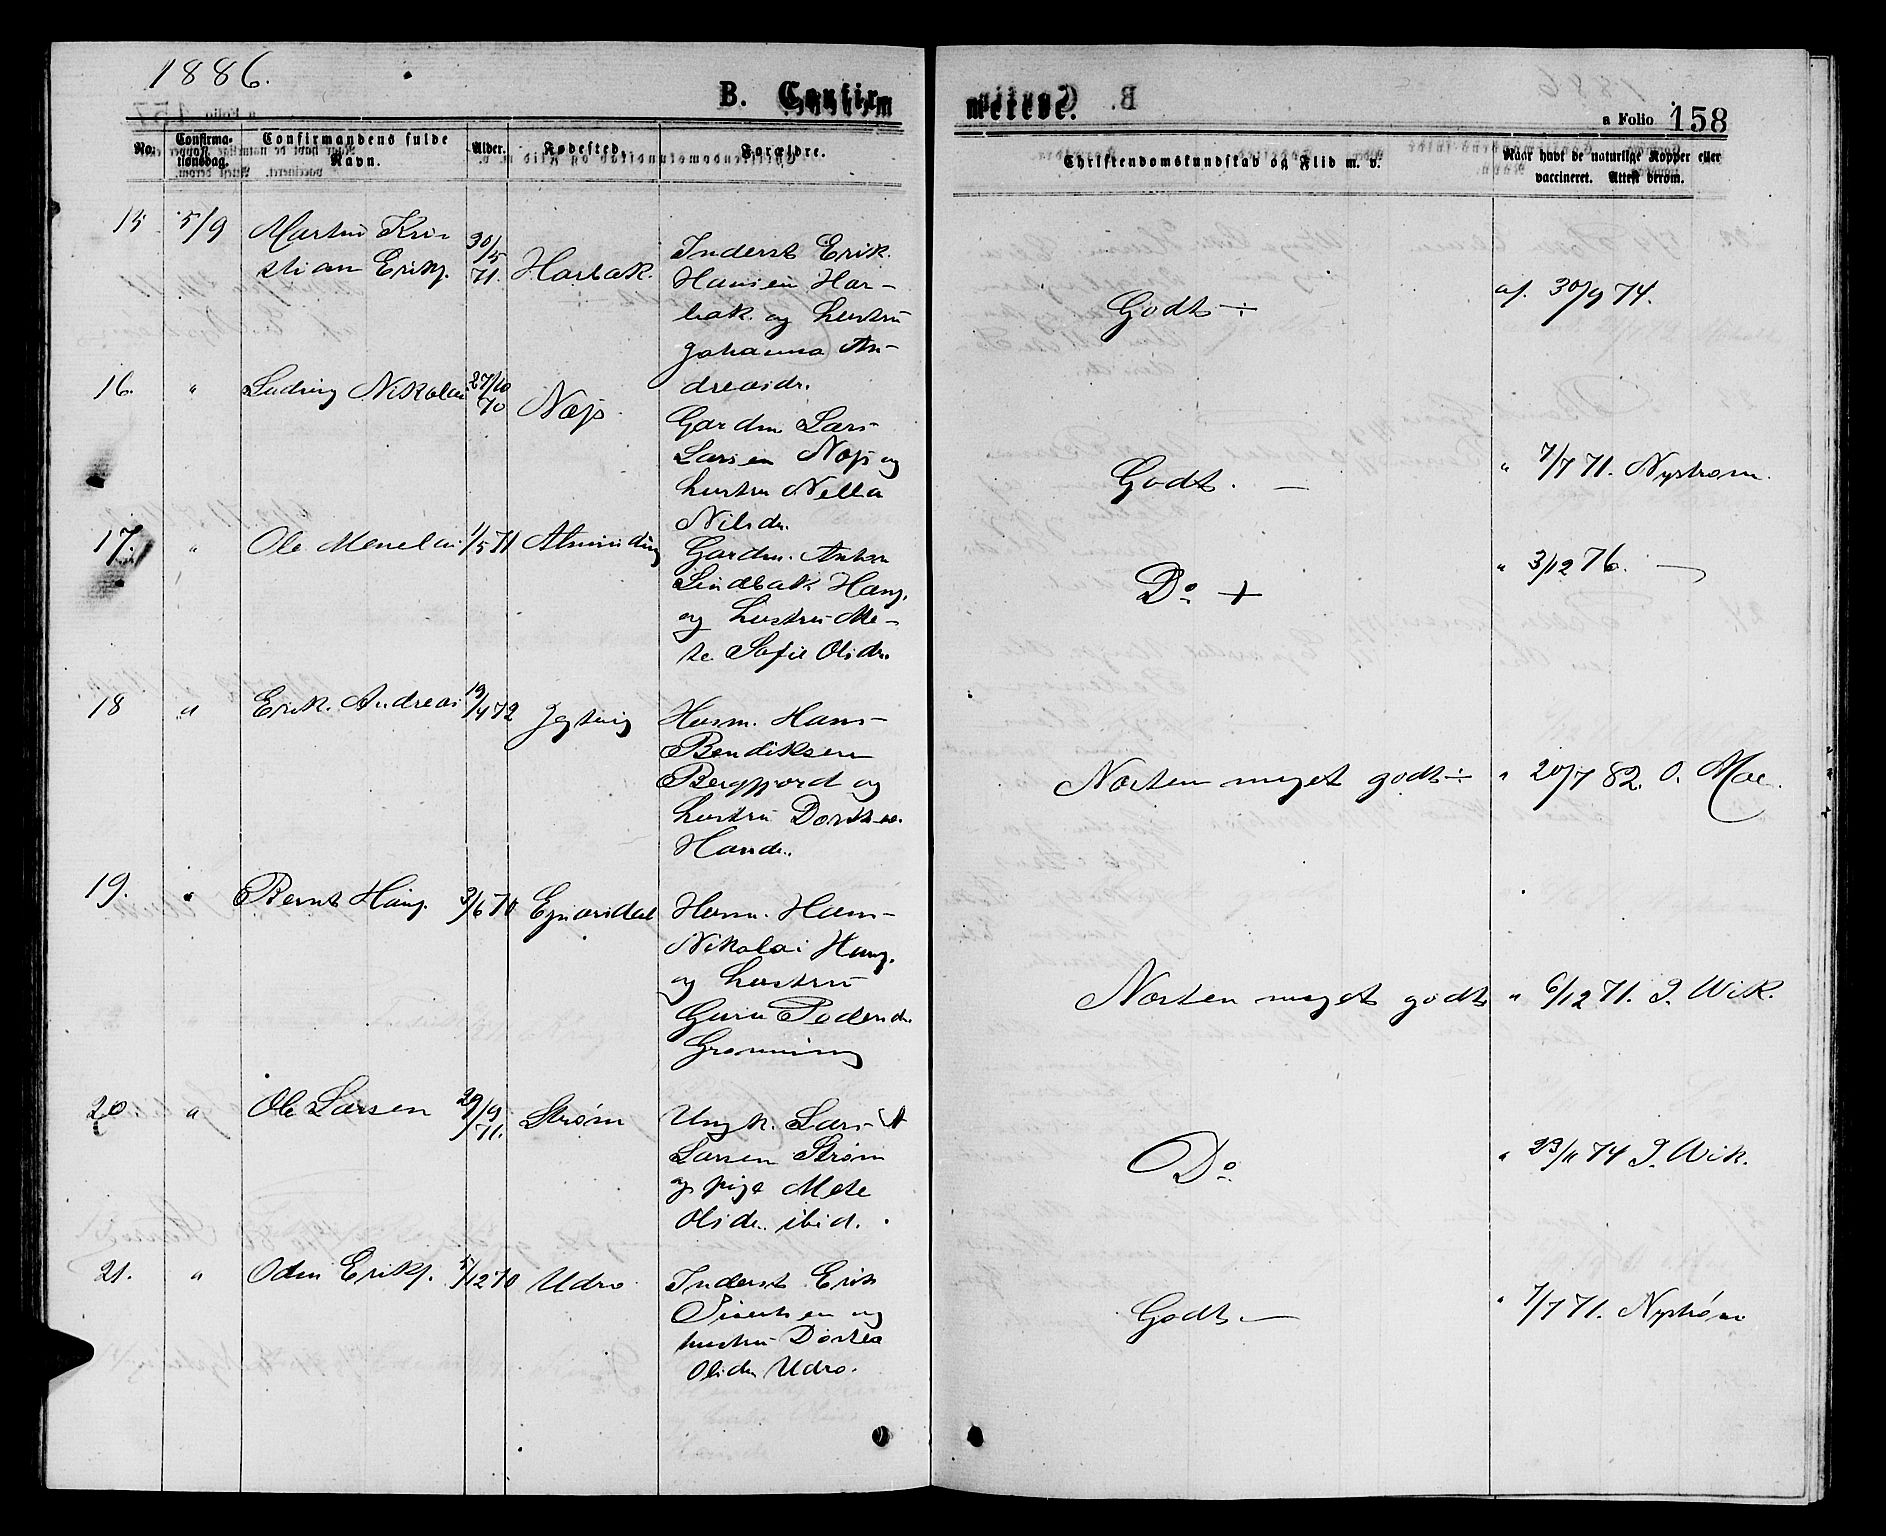 1886.
B. Confir- merede.
a Folio 158
No. Confirma- Confirmandens fulde Alder. Fødested. Forældre. Christendomskundskab og Flid m. v. Naar havt de naturlige Kopper eller
tionsdag. Navn. vaccineret. Attest derom.
15 5/9 Martin Kri- 30/5
stian Eriks. 71. Harbak. Inderst Erik
Hansen Har-
bak og hustru Godt ÷ af. 30/9 74.
Johanna An-
dreasdr.
16. " Ludvig Nikolai 27/10
70 Næss Gardm Lars
Larsen Næss og
hustru Nella Godt. — " 7/7 71. Nystrøm.
Nilsdr.
17. " Ole Menelai 1/5 71 Alminding Gardm. Anton
Lindbak Hans.
og hustru Me- Do + " 3/12 76. —
te Sofie Olsdr.
18 " Erik Andreas 19/4 72 Jøgtvig Husm. Hans
Bendiksen
Bergfjord og Næsten meget godt ÷ " 20/7 82. O. Moe.
hustru Dorthea
Hansdr.
19. " Bernt Hans. 3/6 70 Husm. Hans
Nikolai Hans.
og hustru Næsten meget godt " 6/12 71. J. Wik.
Guru Pedersdr.
Grønning
20 " Ole Larsen 29/9
71. Strøm Ungk. Lars A
Larsen Strøm
og pige Mete Do " 29/11 74 J. Wik.
Olsdr. ibid.
21. " Oden Eriks. 5/12 70 Udro Inderst Erik
Sivertsen og
hustru Dortea Godt — " 7/7 71. Nystrøm
Olsdr Udro.